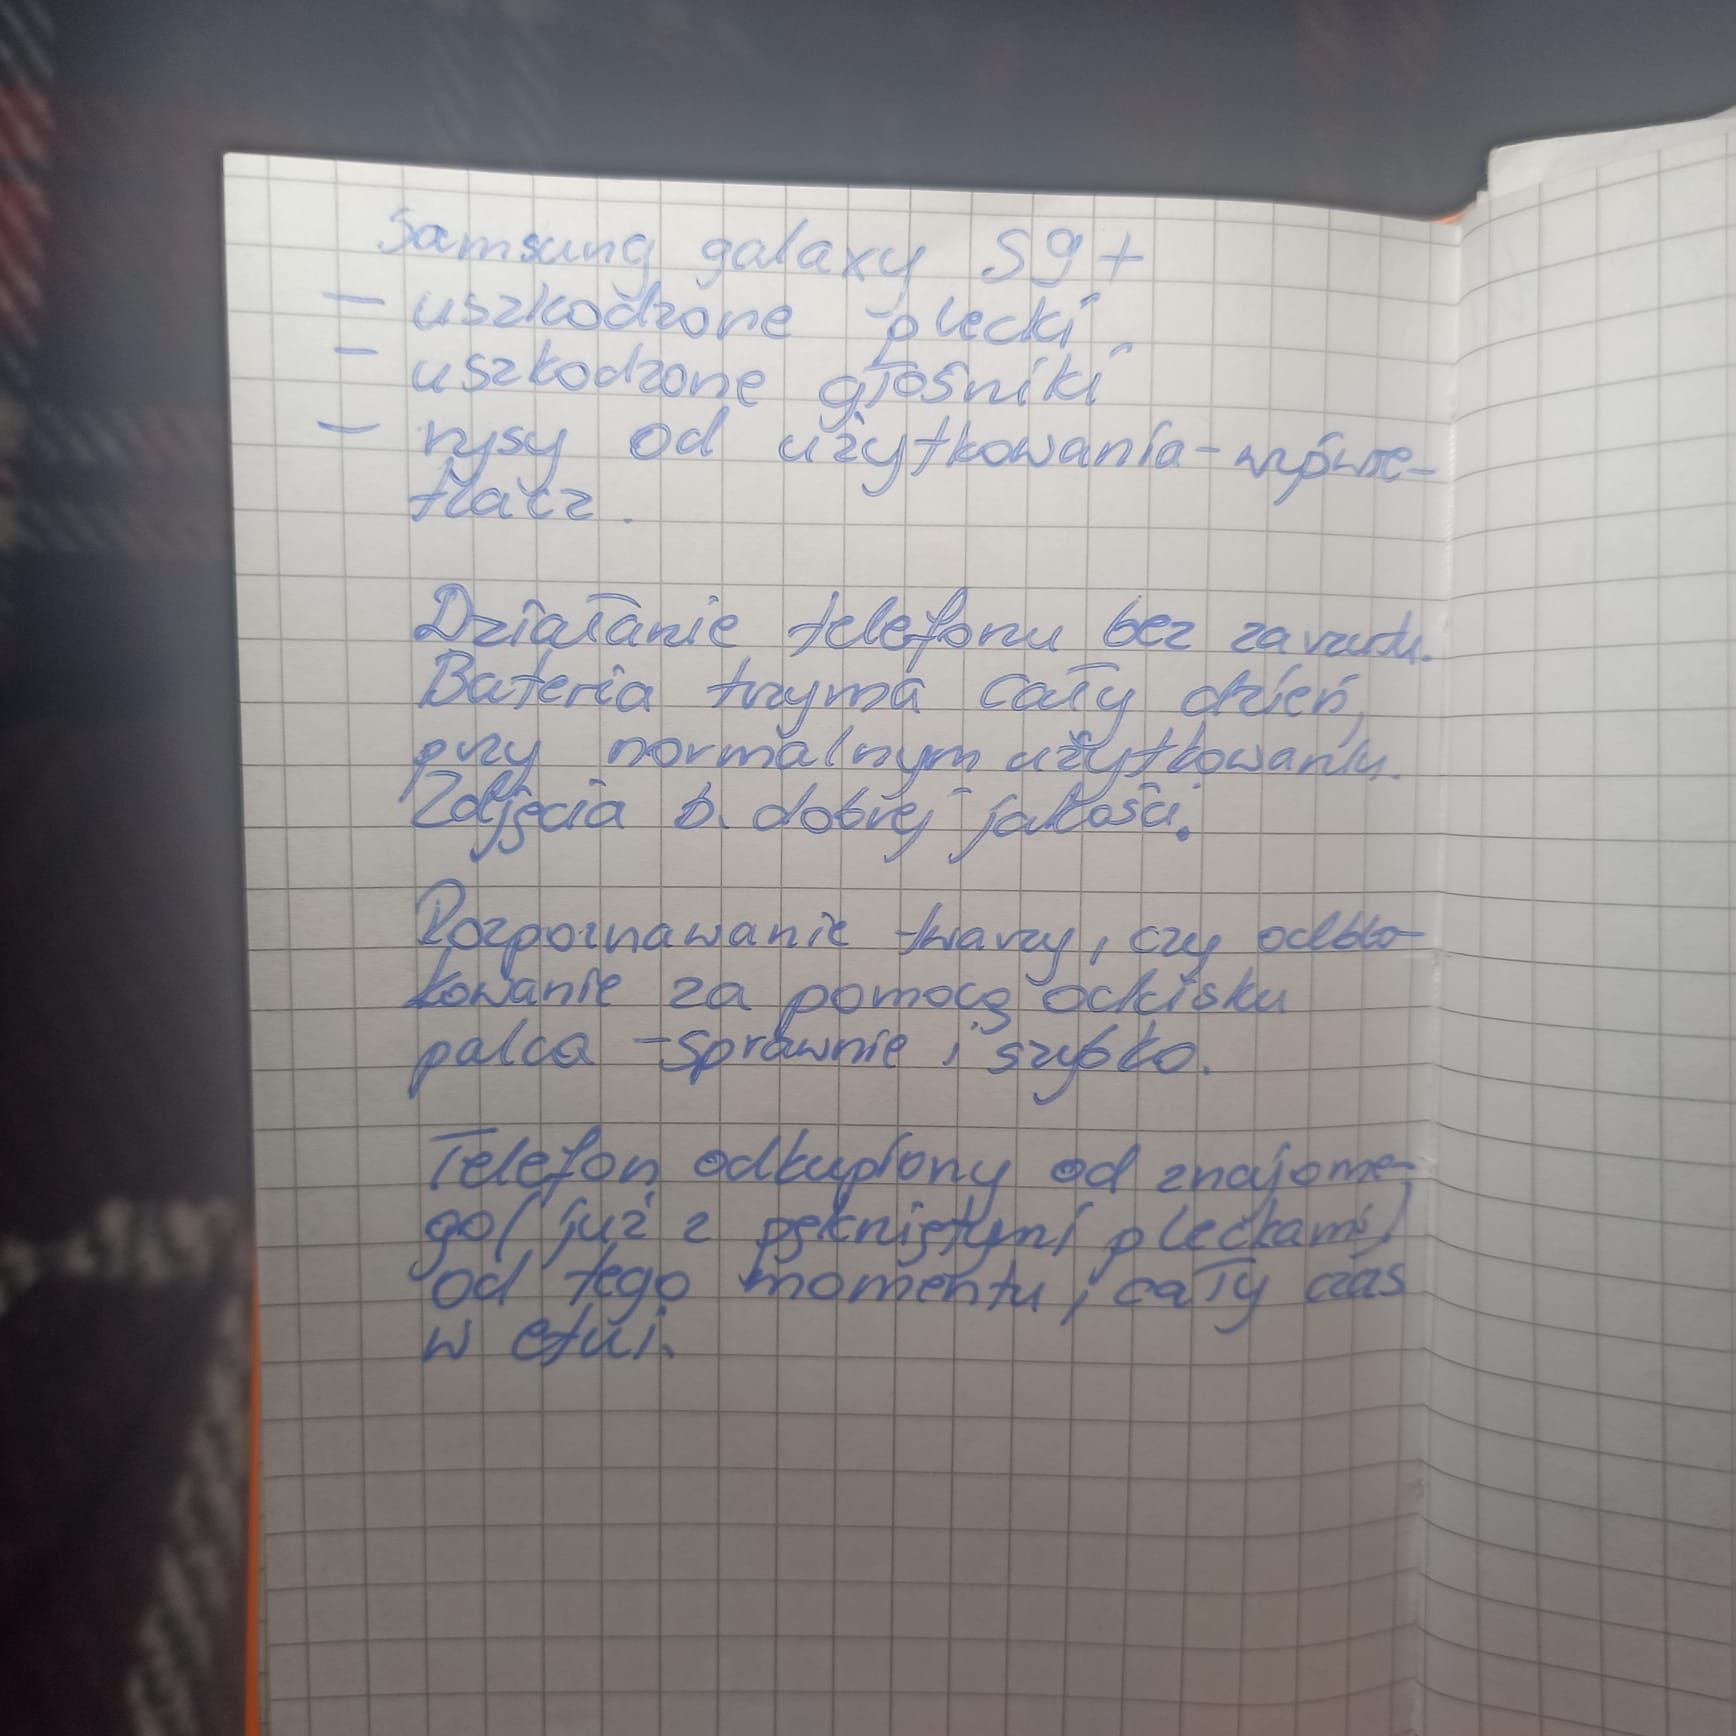 Samsung galaxy S9+
- uszkodzone plecki
- uszkodzone głośniki
- rysy od użytkowania-wyświe-
tlacz.
Działanie telefonu bez zarzutu.
Bateria trzyma cały dzień,
przy normalnym użytkowaniu.
Zdjęcia b. dobrej jakości.
Rozpoznawanie twarzy, czy odblo-
kowanie za pomocą odcisku
palca - sprawnie i szybko.
Telefon odkupiony od znajome-
go (już z pękniętymi pleckami)
od tego momentu, cały czas
w etui.